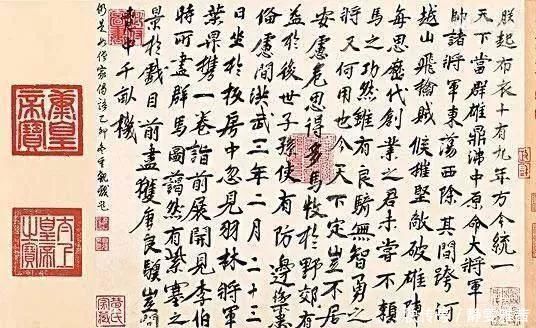 朕起布衣十有九年方今統一
天下當群雄鼎沸中原命大將軍
帥諸將軍東蕩西除其間跨河
越山飛擒賊候摧堅敵破雄陣
每思歷代創業之君未嘗不賴
馬之功然雖有良騎無智勇之
將又何用也今天下定豈不居
安慮危思得多馬牧於野郊有
益於後世子孫使有防邊禦患
備慮間洪武三年二月二十三
日坐於板房中忽見羽林將軍
葉昇攜一卷詣前展開見李伯
時所畫群馬圖藹然有紫塞之
景於戲目前盡獲唐良驥豈問
中千畝機
太上皇帝之寶